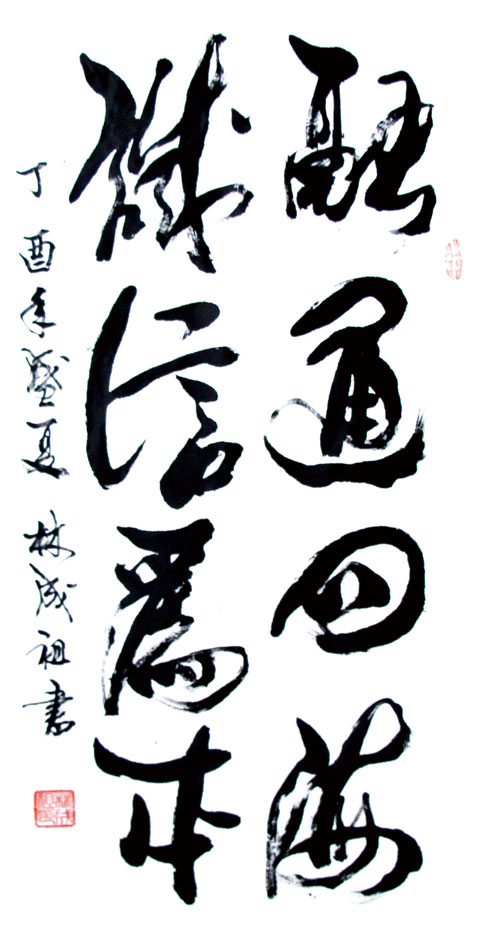 融通四海
诚信為本
丁酉年盛夏 林成祖書